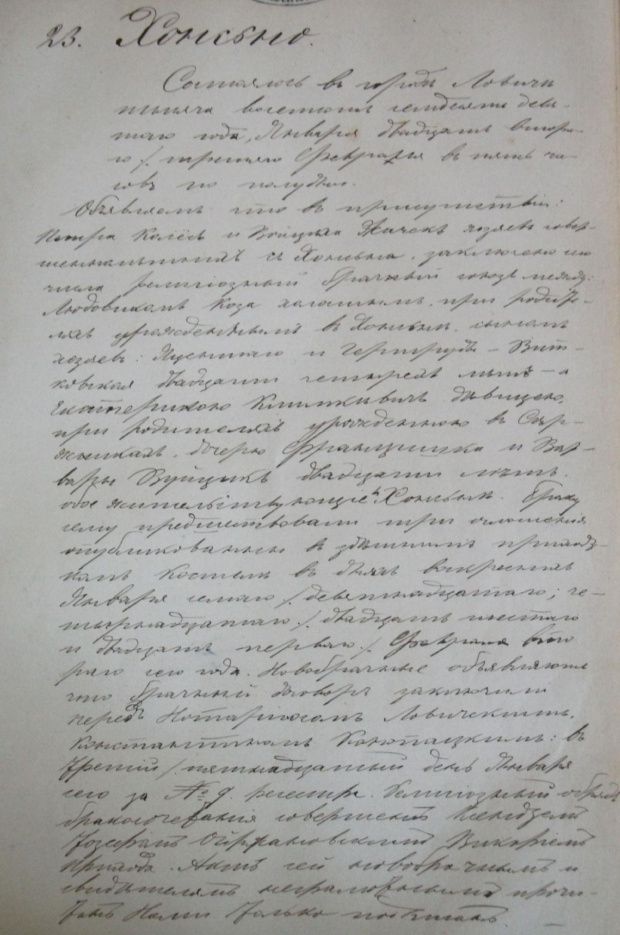 23. Хонсьно.
Состоялось въ городѣ Ловичи
тысяча восемьсотъ семдесятъ девя-
таго года, Января двадцать второ-
го / третьяго Февраля въ пять ча-
совъ по полудню.
Объявляемъ что въ присутствіи:
Петра и Войцеха хозяевъ совер-
шеннолѣтнихъ съ заключено се-
числа религіозный брачный союзъ между:
Людовикомъ Коза холостымъ, при родите-
ляхъ урожденнымъ въ сыномъ
хозяевъ: и Гертруды – Вит-
ковская двадцати четырехъ лѣтъ – а
Екатериною Климкевичъ дѣвицею,
при родителяхъ урожденною въ
дочерью Францишка и Вар-
вары Вуйцикъ двадцати лѣтъ.
обое жительствующіе въ Браку
сему предшествовали три оглашенія
опубликованныя въ здѣшнемъ приход-
комъ костелѣ въ дняхъ воскресныхъ
Января седьмаго / девятнадцатаго; че-
тырнадцатаго / двадцать шестаго
и двадцать перваго / Февраля вто-
раго сего года. Новобрачные объявляютъ
что брачный договоръ заключили
передъ Нотаріусомъ Ловичскимъ,
Константиномъ въ
третій / пятнадцатый день Января
сего за № 9. Религіозный обрядъ
бракосочетанія совершенъ Ксендзомъ
Викаріемъ
прихода. Актъ сей новобрачнымъ и
свидѣтелямъ неграмотнымъ прочи-
танъ Нами только подписанъ